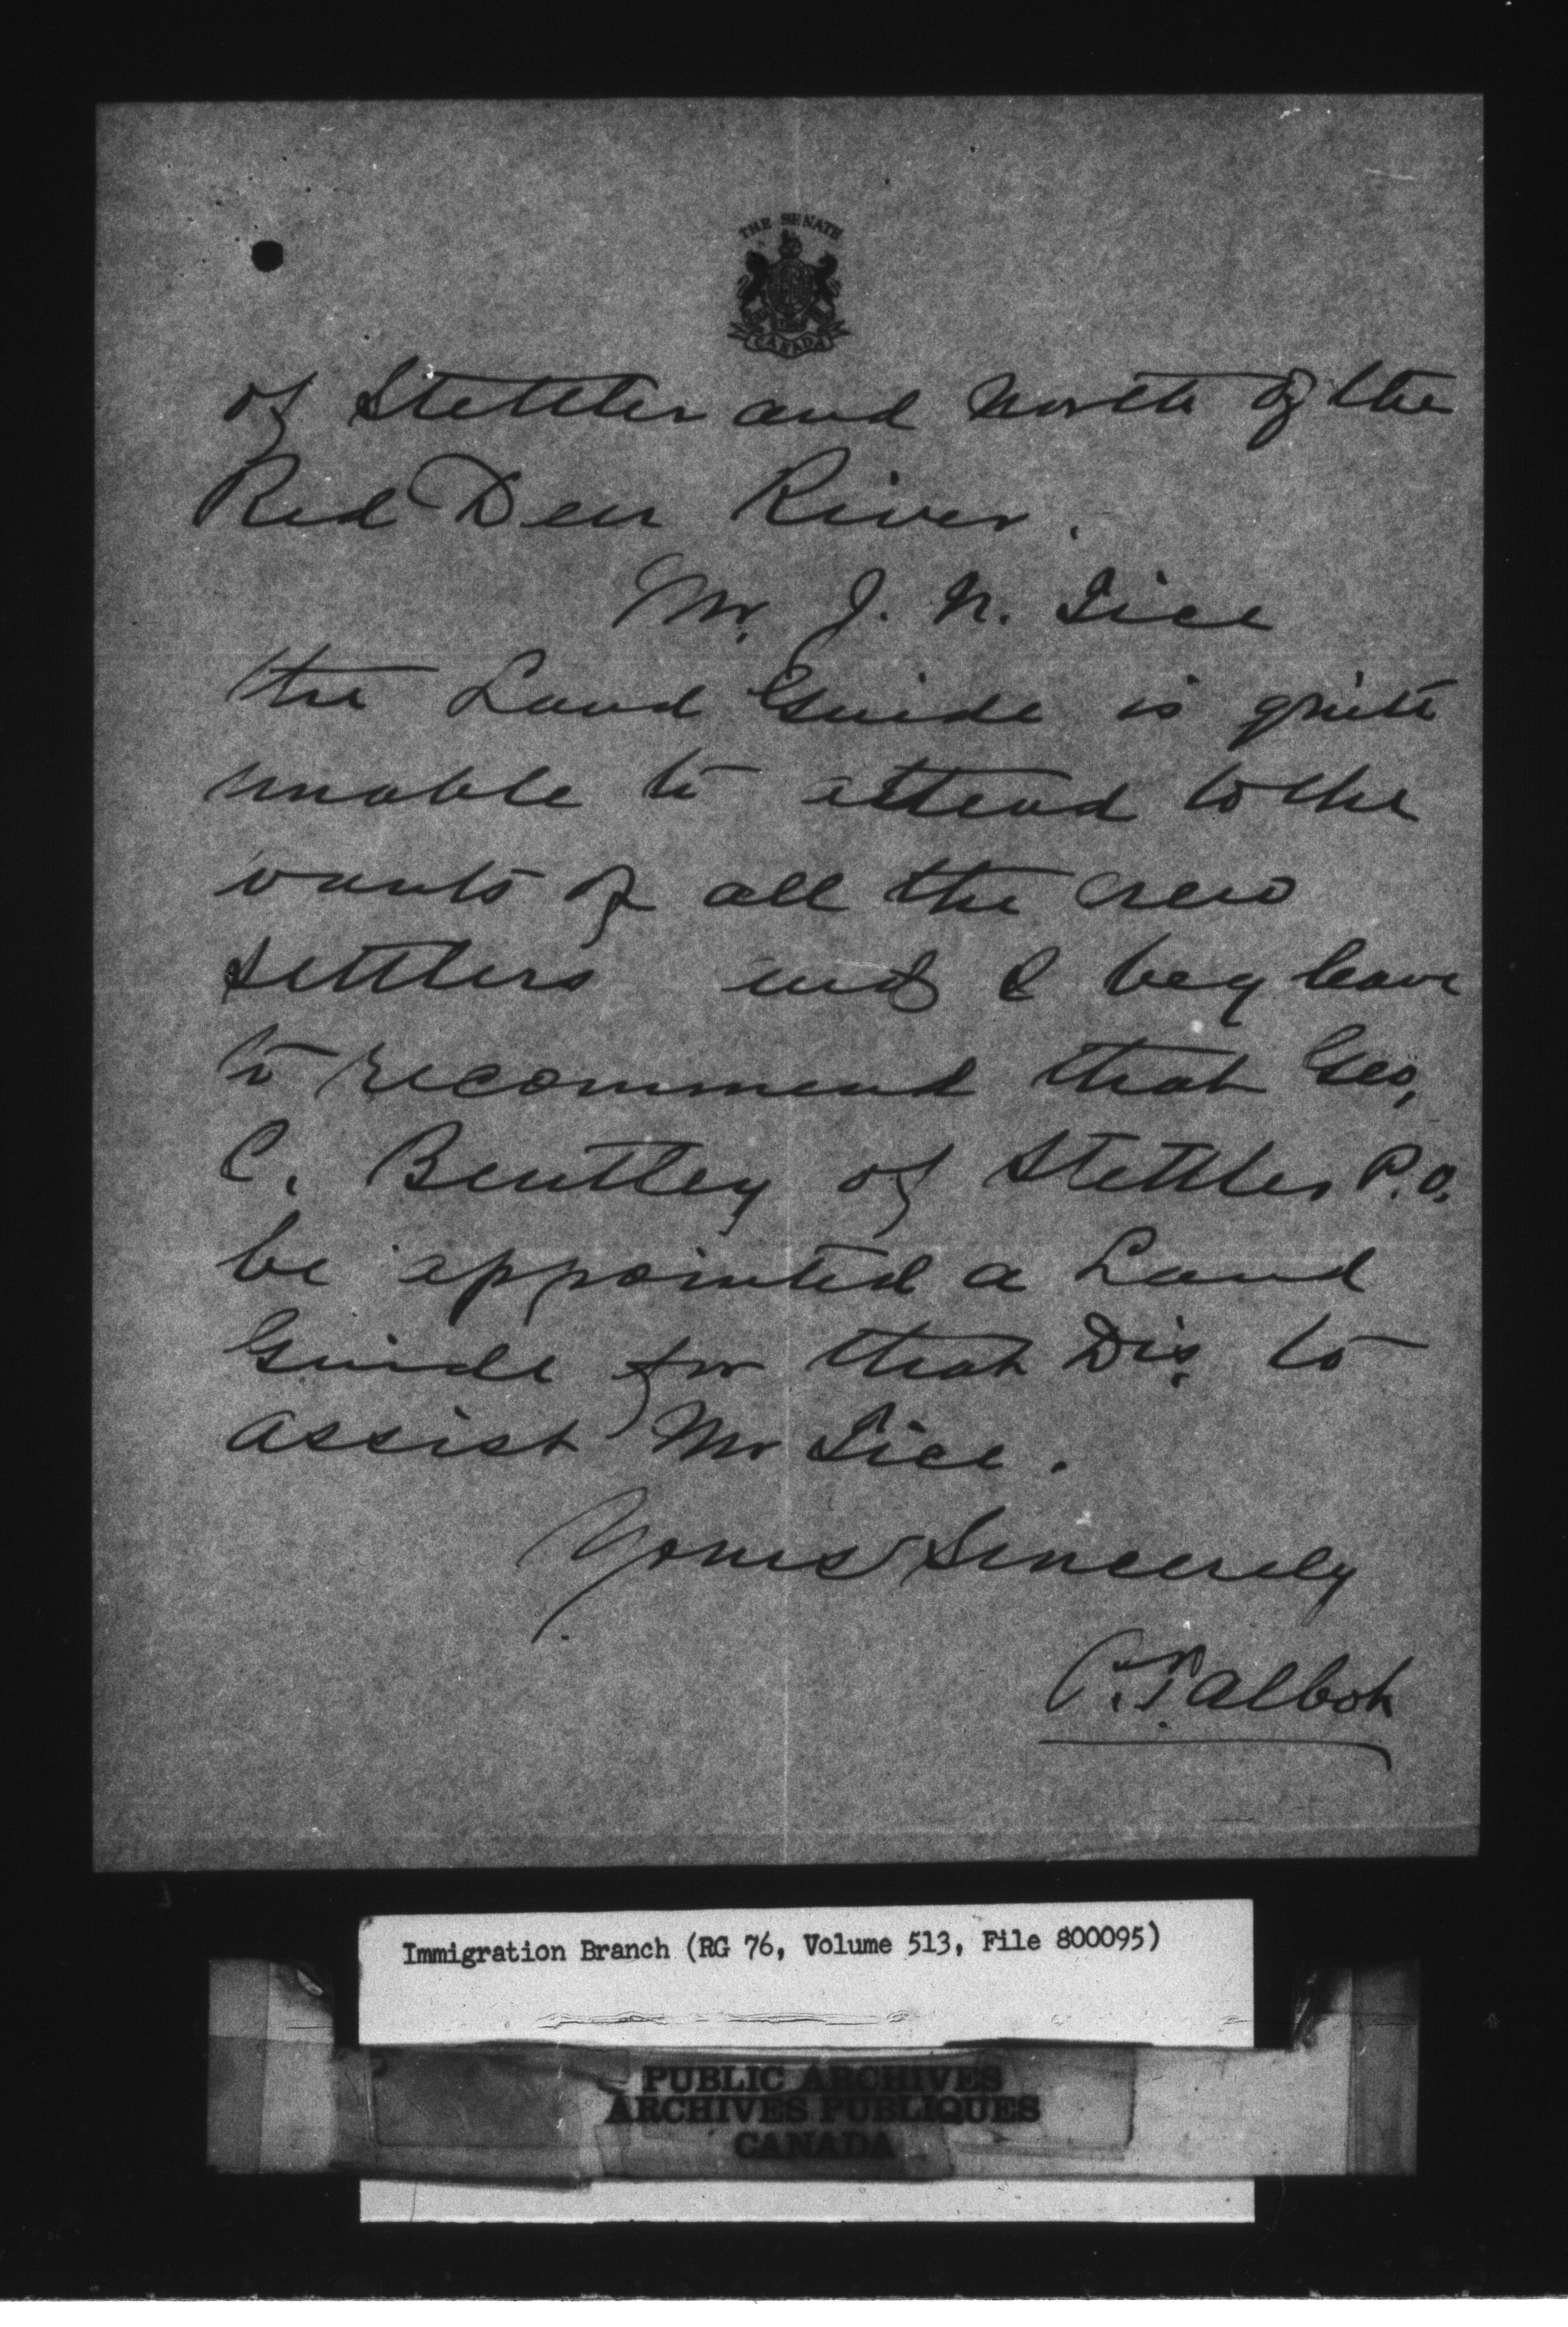 THE SENATE
CANADA
of Stettler and North of the
Red Deer River.
Mr. J. N. Tice
the Land Guide is quite
unable to attend to the
wants of all the new
settlers and I beg leave
to recommend that Geo.
C. Bentley of Stettler P.O.
be appointed a Land
Guide for that Dis. to
assist Mr Tice.
Yours Sincerely
P. Talbot
Immigration Branch (RG 76, Volume 513, File 800095)
PUBLIC ARCHIVES
ARCHIVES PUBLIQUES
CANADA